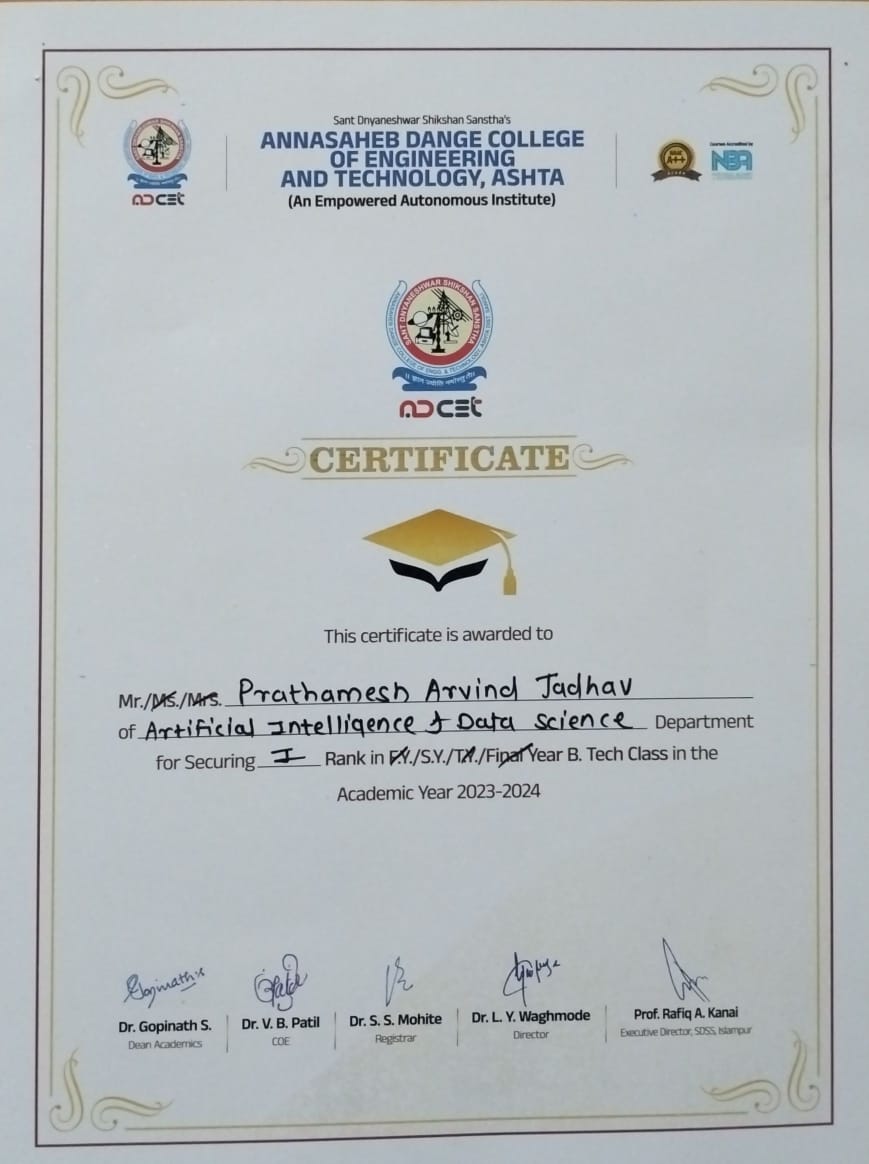 Sant Dnyaneshwar Shikshan Sanstha's
ANNASAHEB DANGE COLLEGE
OF ENGINEERING
AND TECHNOLOGY, ASHTA
(An Empowered Autonomous Institute)
ADCET
NAAC
A++
GRADE
Courses Accredited by
NBA
SANT DNYANESHWAR SHIKSHAN SANSTHA
ANNASAHEB DANGE COLLEGE OF ENGG. & TECHNOLOGY, ASHTA
ADCET
CERTIFICATE
This certificate is awarded to
Mr./Ms./Mrs. Prathamesh Arvind Jadhav
of Artificial Intelligence & Data science Department
for Securing I Rank in F.Y./S.Y./T.Y./Final Year B. Tech Class in the
Academic Year 2023-2024
Dr. Gopinath S.
Dean Academics
Dr. V. B. Patil
COE
Dr. S. S. Mohite
Registrar
Dr. L. Y. Waghmode
Director
Prof. Rafiq A. Kanai
Executive Director, SDSS, Islampur